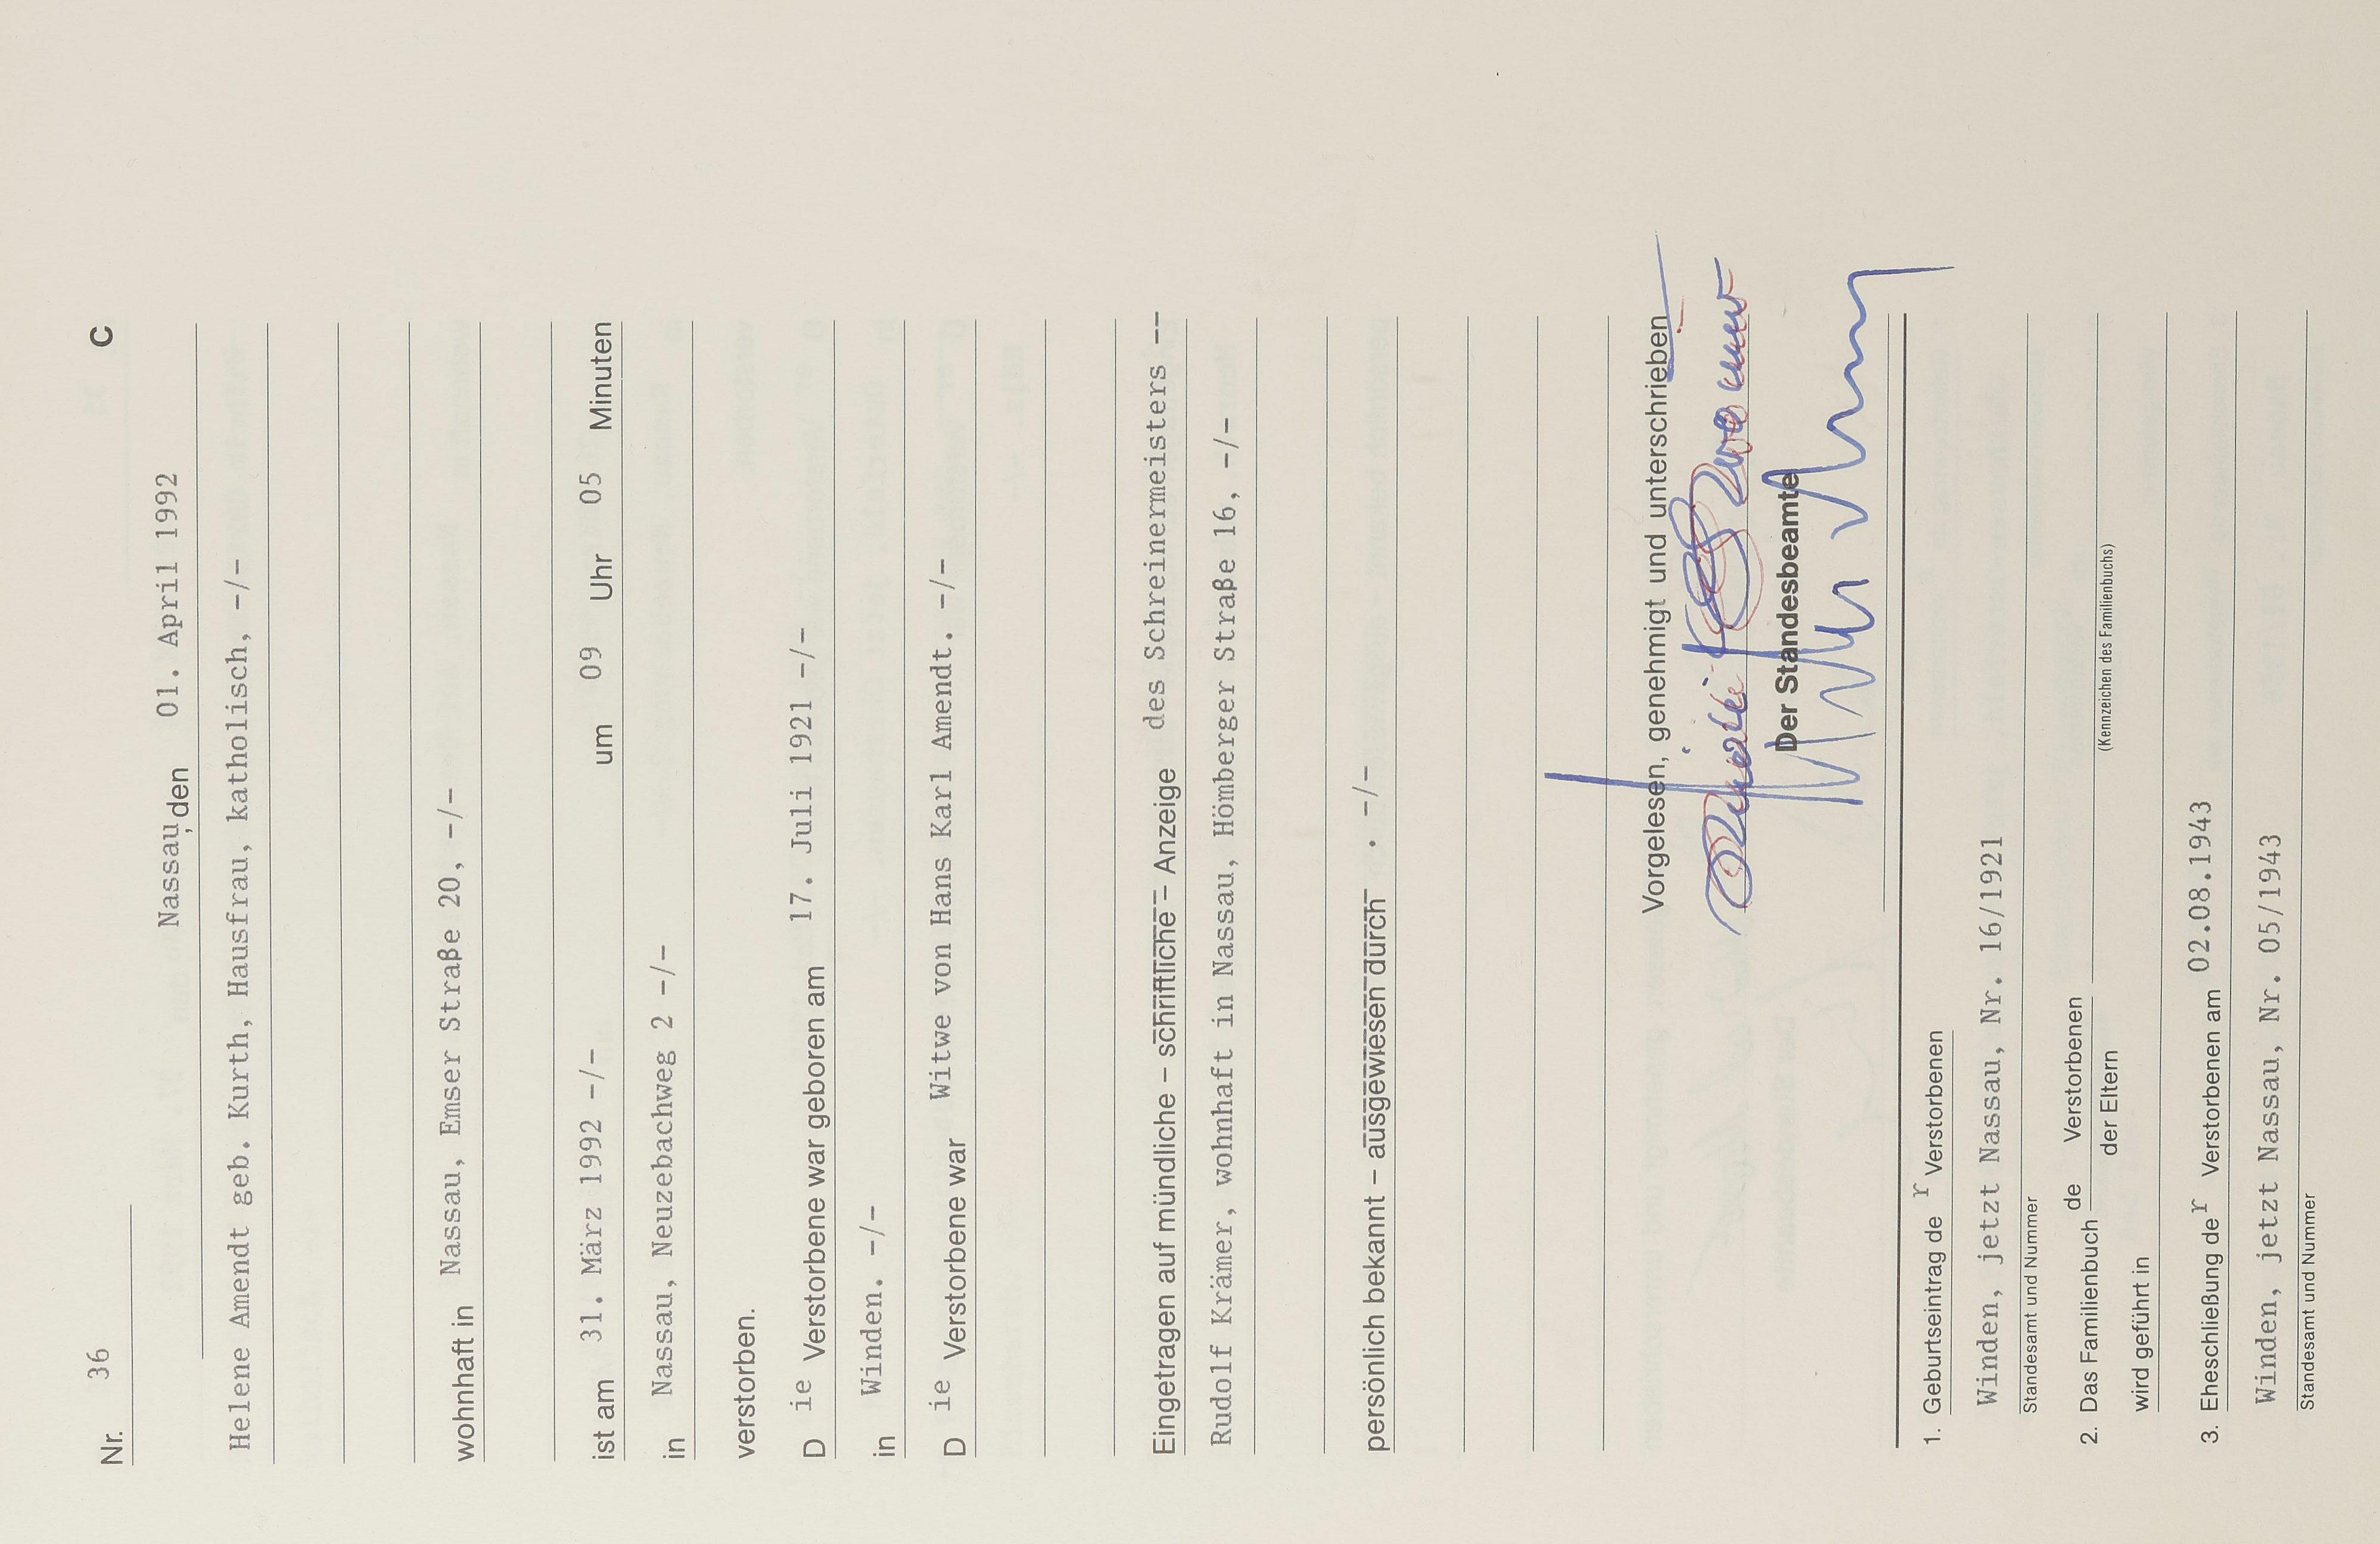 Nr. 36 C
Nassau, den 01. April 1992
Helene Amendt geb. Kurth, Hausfrau, katholisch, -/-
wohnhaft in Nassau, Emser Straße 20, -/-
ist am 31. März 1992 -/- um 09 Uhr 05 Minuten
in Nassau, Neuzebachweg 2 -/-
verstorben.
D ie Verstorbene war geboren am 17. Juli 1921 -/-
in Winden. -/-
D ie Verstorbene war Witwe von Hans Karl Amendt. -/-
Eingetragen auf mündliche – schriftliche – Anzeige des Schreinermeisters --
Rudolf Krämer, wohnhaft in Nassau, Hömberger Straße 16, -/-
persönlich bekannt – ausgewiesen durch . -/-
Vorgelesen, genehmigt und unterschrieben
Der Standesbeamte
1. Geburtseintrag de r Verstorbenen
Winden, jetzt Nassau, Nr. 16/1921
Standesamt und Nummer
2. Das Familienbuch de Verstorbenen
der Eltern
(Kennzeichen des Familienbuchs)
wird geführt in
3. Eheschließung de r Verstorbenen am 02.08.1943
Winden, jetzt Nassau, Nr. 05/1943
Standesamt und Nummer